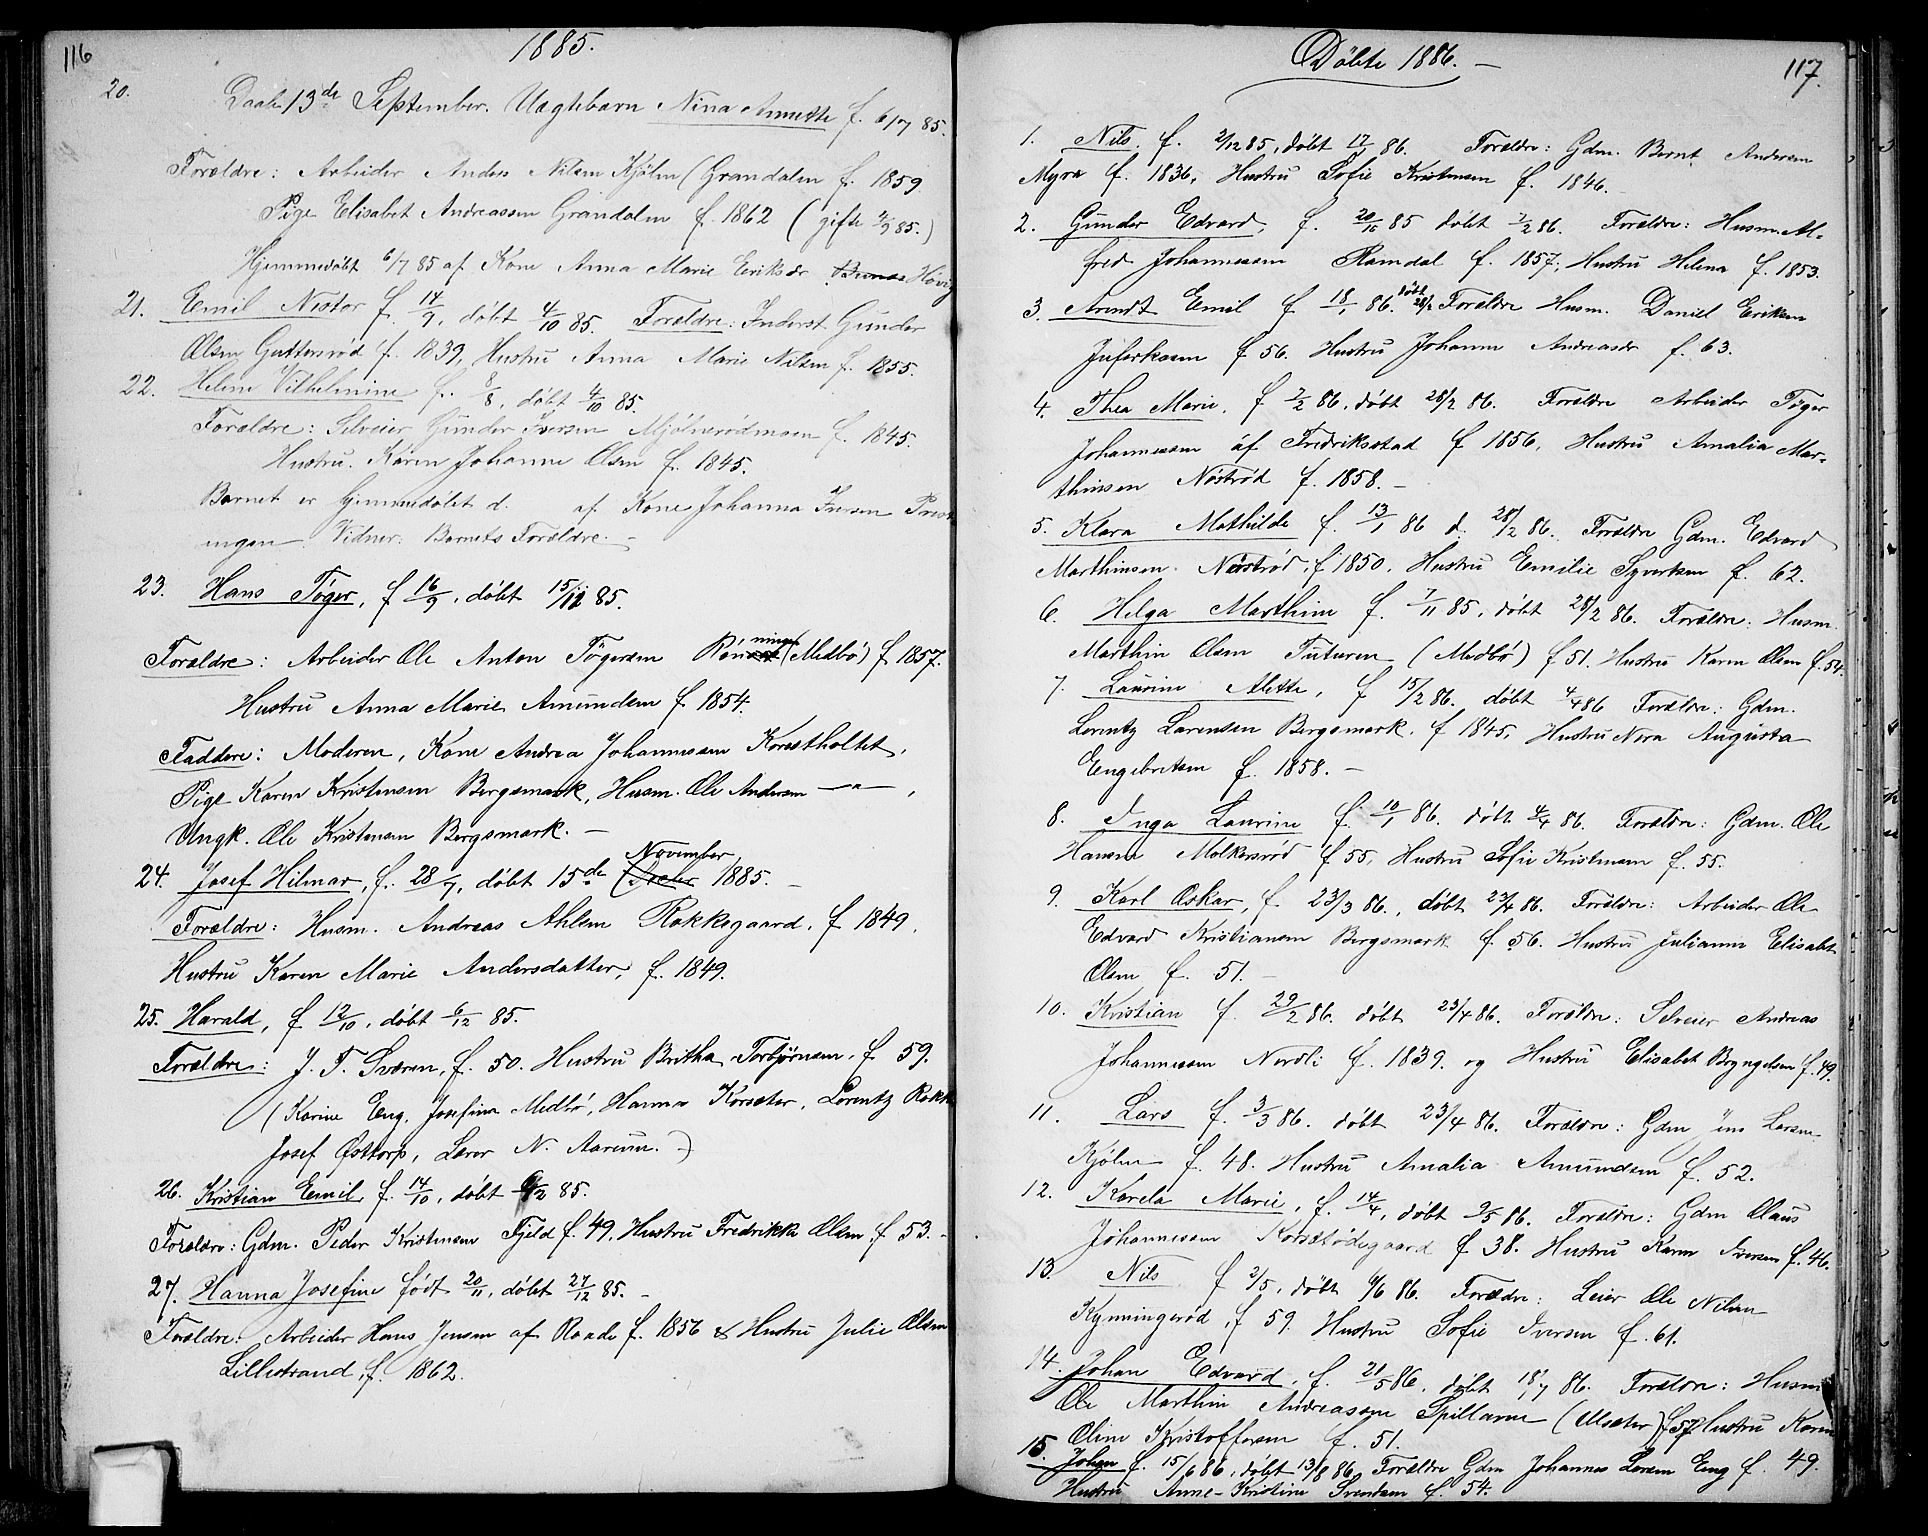 116
1885.
20.
Daab 13de September. Uægtebarn Nina Annette f. 6/7 85.
Forældre: Arbeider Anders Nilsen Kjølen (Grandalen f. 1859
Pige Elisabet Andreassen Grandalen f. 1862 (gifte 4/9 85.)
Hjemmedøbt 6/7 85 af Kone Anna Marie Eriksdr Høvig
21. Emil Nestor f. 14/9, døbt 4/10 85. Forældre: Inderst Gunder
Olsen Guttersrød f. 1839, Hustru Anna Marie Nilsen f. 1855.
22. Helene Vilhelmine f. 8/8, døbt 4/10 85.
Forældre: Selveier Gunder Iversen Mjølnerødmoen f. 1845.
Hustru. Karen Johanne Olsen f. 1845.
Barnet er hjemmedøbt d. af Kone Johanna Iversen
ungen. Vidner: Barnets Forældre. –
23. Hans Tøger, f 16/9, døbt 15/11 85.
Forældre: Arbeider Ole Anton Tøgersen Rønningen (Medbø) f 1857.
Hustru Anna Marie Amundsen f 1854.
Faddere: Moderen, Kone Andrea Johannessen Korsetholtet,
Pige Karen Kristensen Bergsmark, Husm. Ole Andersen —"—,
Ungk. Ole Kristensen Bergsmark. –
24. Josef Hilmar, f. 28/7, døbt 15de November 1885. –
Forældre: Husm. Andreas Ahlsen Rokkegaard, f 1849.
Hustru Karen Marie Andersdatter, f. 1849.
25. Harald, f 12/10, døbt 6/12 85.
Forældre: J. T. Sværen, f. 50. Hustru Britha Torbjørnsen, f 59.
(Karine Eng, Josefine Medbø, Hanna Korsæter, Lorentz Rokke
Josef Østtorp, Lærer N. Aarum.)
26. Kristian Emil f. 14/10, døbt 6/12 85.
Forældre: Gdm. Peder Kristensen Fjeld f. 49, Hustru Fredrikke Olsen f 53. –
27. Hanna Josefine født 20/11, døbt 27/12 85. –
Forældre: Arbeider Hans Jensen af Raade f. 1856 & Hustru Julie Olsen
Lillestrand, f. 1862.
Døbte 1886. –
117.
1. Nils f. 2/12 85, døbt 17/1 86. Forældre: Gdm. Bernt Andersen
Myra f. 1836, Hustru Sofie Kristensen f. 1846. –
2. Gunder Edvard, f. 20/10 85 døbt 7/2 86. Forældre: Husm. Al-
fred Johannessen Ramdal f. 1857, Hustru Helena f. 1853.
3. Arendt Emil f 18/1 86. døbt 28/2 Forældre Husm. Daniel Eriksen
Juferkasen f 56. Hustru Johanne Andreasdr f. 63.
4. Thea Marie, f 7/2 86, døbt 28/2 86. Forældre Arbeider Tøger
Johannessen af Fredriksstad f 1856, Hustru Amalia Mar-
thinsen Nøstrød f. 1858. –
5. Klara Mathilde f. 13/1 86 d. 28/2 86. Forældre Gdm. Edvard
Marthinsen Nøstrød, f 1850, Hustru Emilie Syversen f. 62.
6. Helga Marthine f. 7/11 85, døbt 28/2 86. Forældre: Husm.
Marthin Olsen Tuturen (Medbø) f 51. Hustru Karen Olsen f. 54.
7. Laurine Alette, f 15/2 86. døbt 4/4 86 Forældre: Gdm.
Lorentz Larensen Bergsmark. f 1845, Hustru Nora Augusta
Engebretsen f. 1858. –
8. Inga Laurine f. 10/1 86. døbt 4/4 86. Forældre: Gdm. Ole
Hansen Molkersrød f 55, Hustru Sofie Kristensen f. 55.
9. Karl Oskar, f 23/3 86., døbt 23/4 86. Forældre: Arbeider Ole
Edvard Kristiansen Bergsmark f. 56. Hustru Julianne Elisabet
Olsen f. 51. –
10. Kristian f. 29/2 86. døbt 23/4 86. Forældre: Selveier Andreas
Johannessen Nordli f. 1839. og Hustru Elisabet Bryngelsen f. 49.
11. Lars f. 3/3 86. døbt 23/4 86. Forældre: Gdm Jens Larsen
Kjølen f. 48. Hustru Amalia Amundsen f. 52.
12. Karela Marie, f. 14/4, døbt 9/5 86. Forældre: Gdm Claus
Johannessen Korsetødegaard f 38. Hustru Karen Iversen f. 46.
13. Nils f 2/5, døbt 6/6 86. Forældre: Leier Ole Nilsen
Kynningerød, f 59. Hustru Sofie Iversen f. 61.
14. Johan Edvard, f. 21/5 86, døbt 18/7 86. Forældre: Husm
Ole Marthin Andreassen Spillarne (Ulsæter) f 57 Hustru Karen
Oline Kristoffersen f. 51.
15. Johan f. 15/6 86, døbt 13/8 86. Forældre Gdm Johannes Larsen Eng f. 49.
Hustru Anne-Kristine Svendsen f. 54.